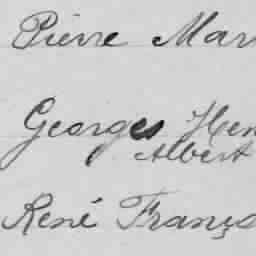 Pierre Mar
Georges Hen
Albert
René Franç